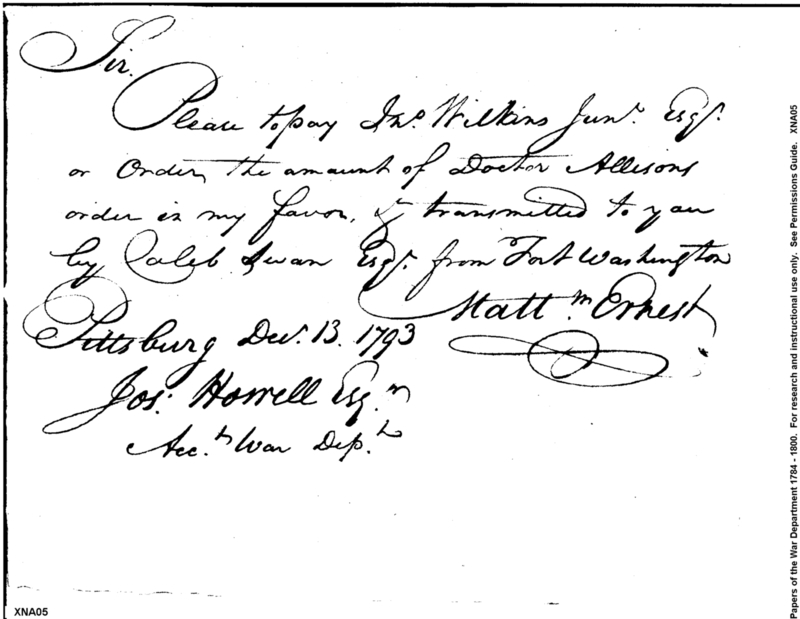 Sir.
Please to pay Jno. Wilkins Junr. Esqr.
or Order, the amount of Doctor Allisons
order in my favor, & transmitted to you
by Caleb Swan Esqr. from Fort Washington
Matt.m Ernest
Pittsburg Decr. 13. 1793
Jos: Howell Esq.r
Acc.t War Dep.t
Papers of the War Department 1784 - 1800. For research and instructional use only. See Permissions Guide. XNA05
XNA05